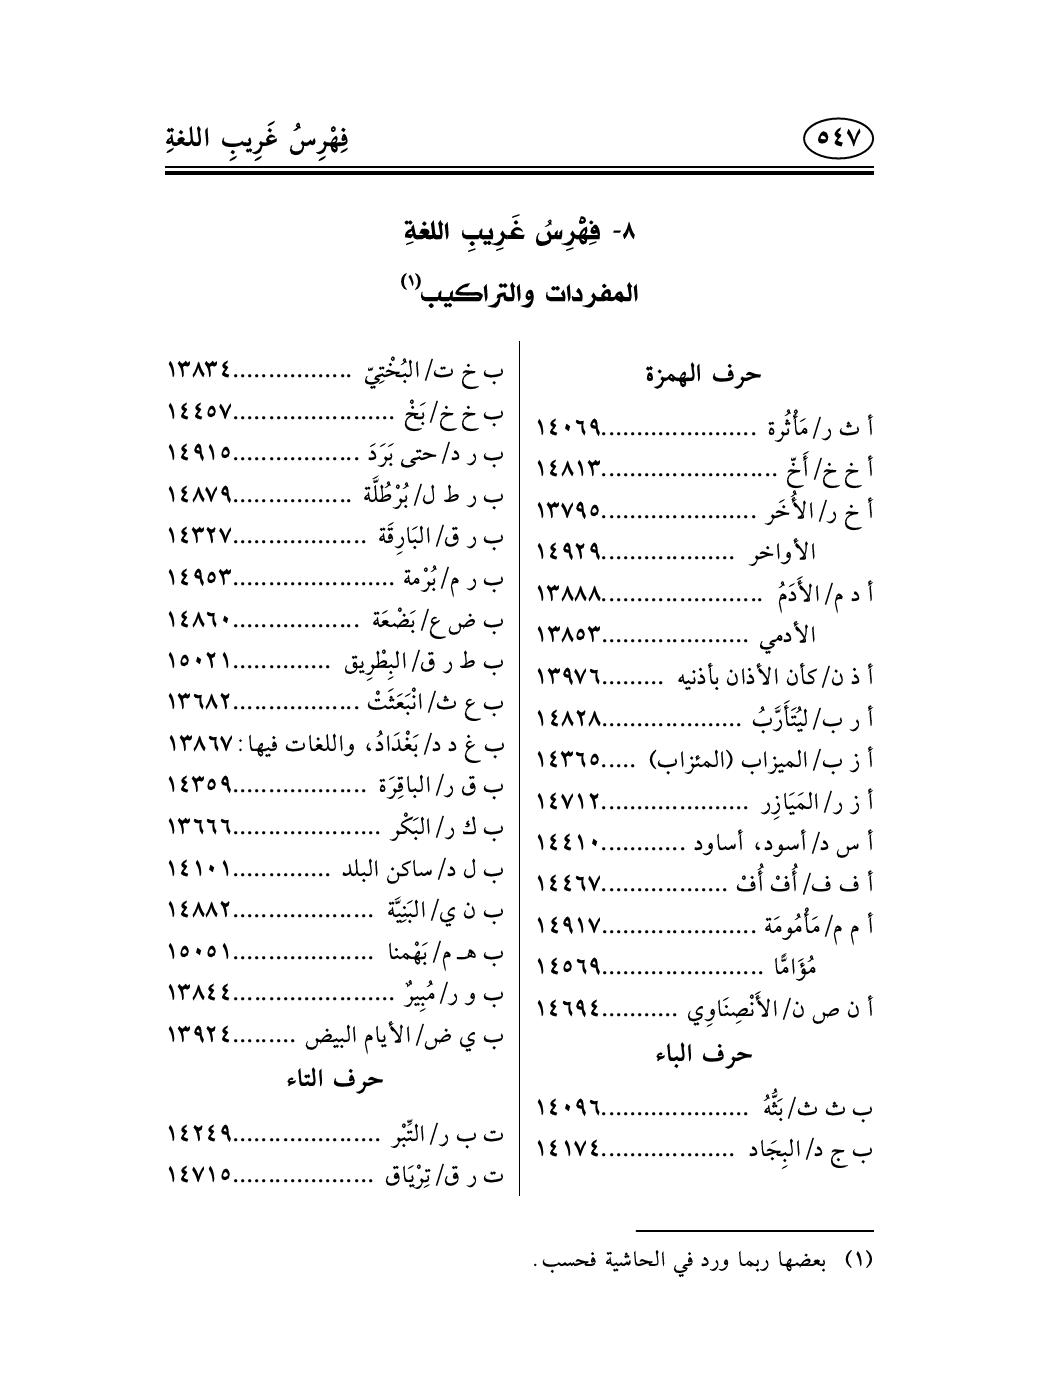 ٥٤٧
فِهْرِسُ غَرِيبِ اللغةِ
٨- فِهْرِسُ غَرِيبِ اللغةِ
المفردات والتراكيب(١)
حرف الهمزة
أ ث ر/ مَأْثُرة ......................١٤٠٦٩
أ خ خ/ أَخّ .........................١٤٨١٣
أ خ ر/ الأُخَر ......................١٣٧٩٥
الأواخر ...................١٤٩٢٩
أ د م/ الأَدَمُ .......................١٣٨٨٨
الأدمي .....................١٣٨٥٣
أ ذ ن/ كأن الأذان بأذنيه .........١٣٩٧٦
أ ر ب/ ليُتَأَرَّبُ ....................١٤٨٢٨
أ ز ب/ الميزاب (المئزاب) .....١٤٣٦٥
أ ز ر/ المَيَازِر .....................١٤٧١٢
أ س د/ أسود، أساود ............١٤٤١٠
أ ف ف/ أُفْ أُفْ ..................١٤٤٦٧
أ م م/ مَأْمُومَة ......................١٤٩١٧
مُؤَامًّا .......................١٤٥٦٩
أ ن ص ن/ الأَنْصِنَاوِي ...........١٤٦٩٤
حرف الباء
ب ث ث/ بَثُّهُ .....................١٤٠٩٦
ب ج د/ البِجَاد ...................١٤١٧٤
ب خ ت/ البُخْتِيّ .................١٣٨٣٤
ب خ خ/ بَخْ .......................١٤٤٥٧
ب ر د/ حتى بَرَدَ ..................١٤٩١٥
ب ر ط ل/ بُرْطُلَّة .................١٤٨٧٩
ب ر ق/ البَارِقَة ...................١٤٣٢٧
ب ر م/ بُرْمة .......................١٤٩٥٣
ب ض ع/ بَضْعَة ..................١٤٨٦٠
ب ط ر ق/ البِطْرِيق ..............١٥٠٢١
ب ع ث/ انْبَعَثَتْ ..................١٣٦٨٢
ب غ د د/ بَغْدَادُ، واللغات فيها: ١٣٨٦٧
ب ق ر/ الباقِرَة ...................١٤٣٥٩
ب ك ر/ البَكْر .....................١٣٦٦٦
ب ل د/ ساكن البلد ..............١٤١٠١
ب ن ي/ البَنِيَّة ....................١٤٨٨٢
ب هـ م/ بَهْمنا ....................١٥٠٥١
ب و ر/ مُبِيرٌ .......................١٣٨٤٤
ب ي ض/ الأيام البيض .........١٣٩٢٤
حرف التاء
ت ب ر/ التِّبْر .....................١٤٢٤٩
ت ر ق/ تِرْيَاق ....................١٤٧١٥
(١) بعضها ربما ورد في الحاشية فحسب.